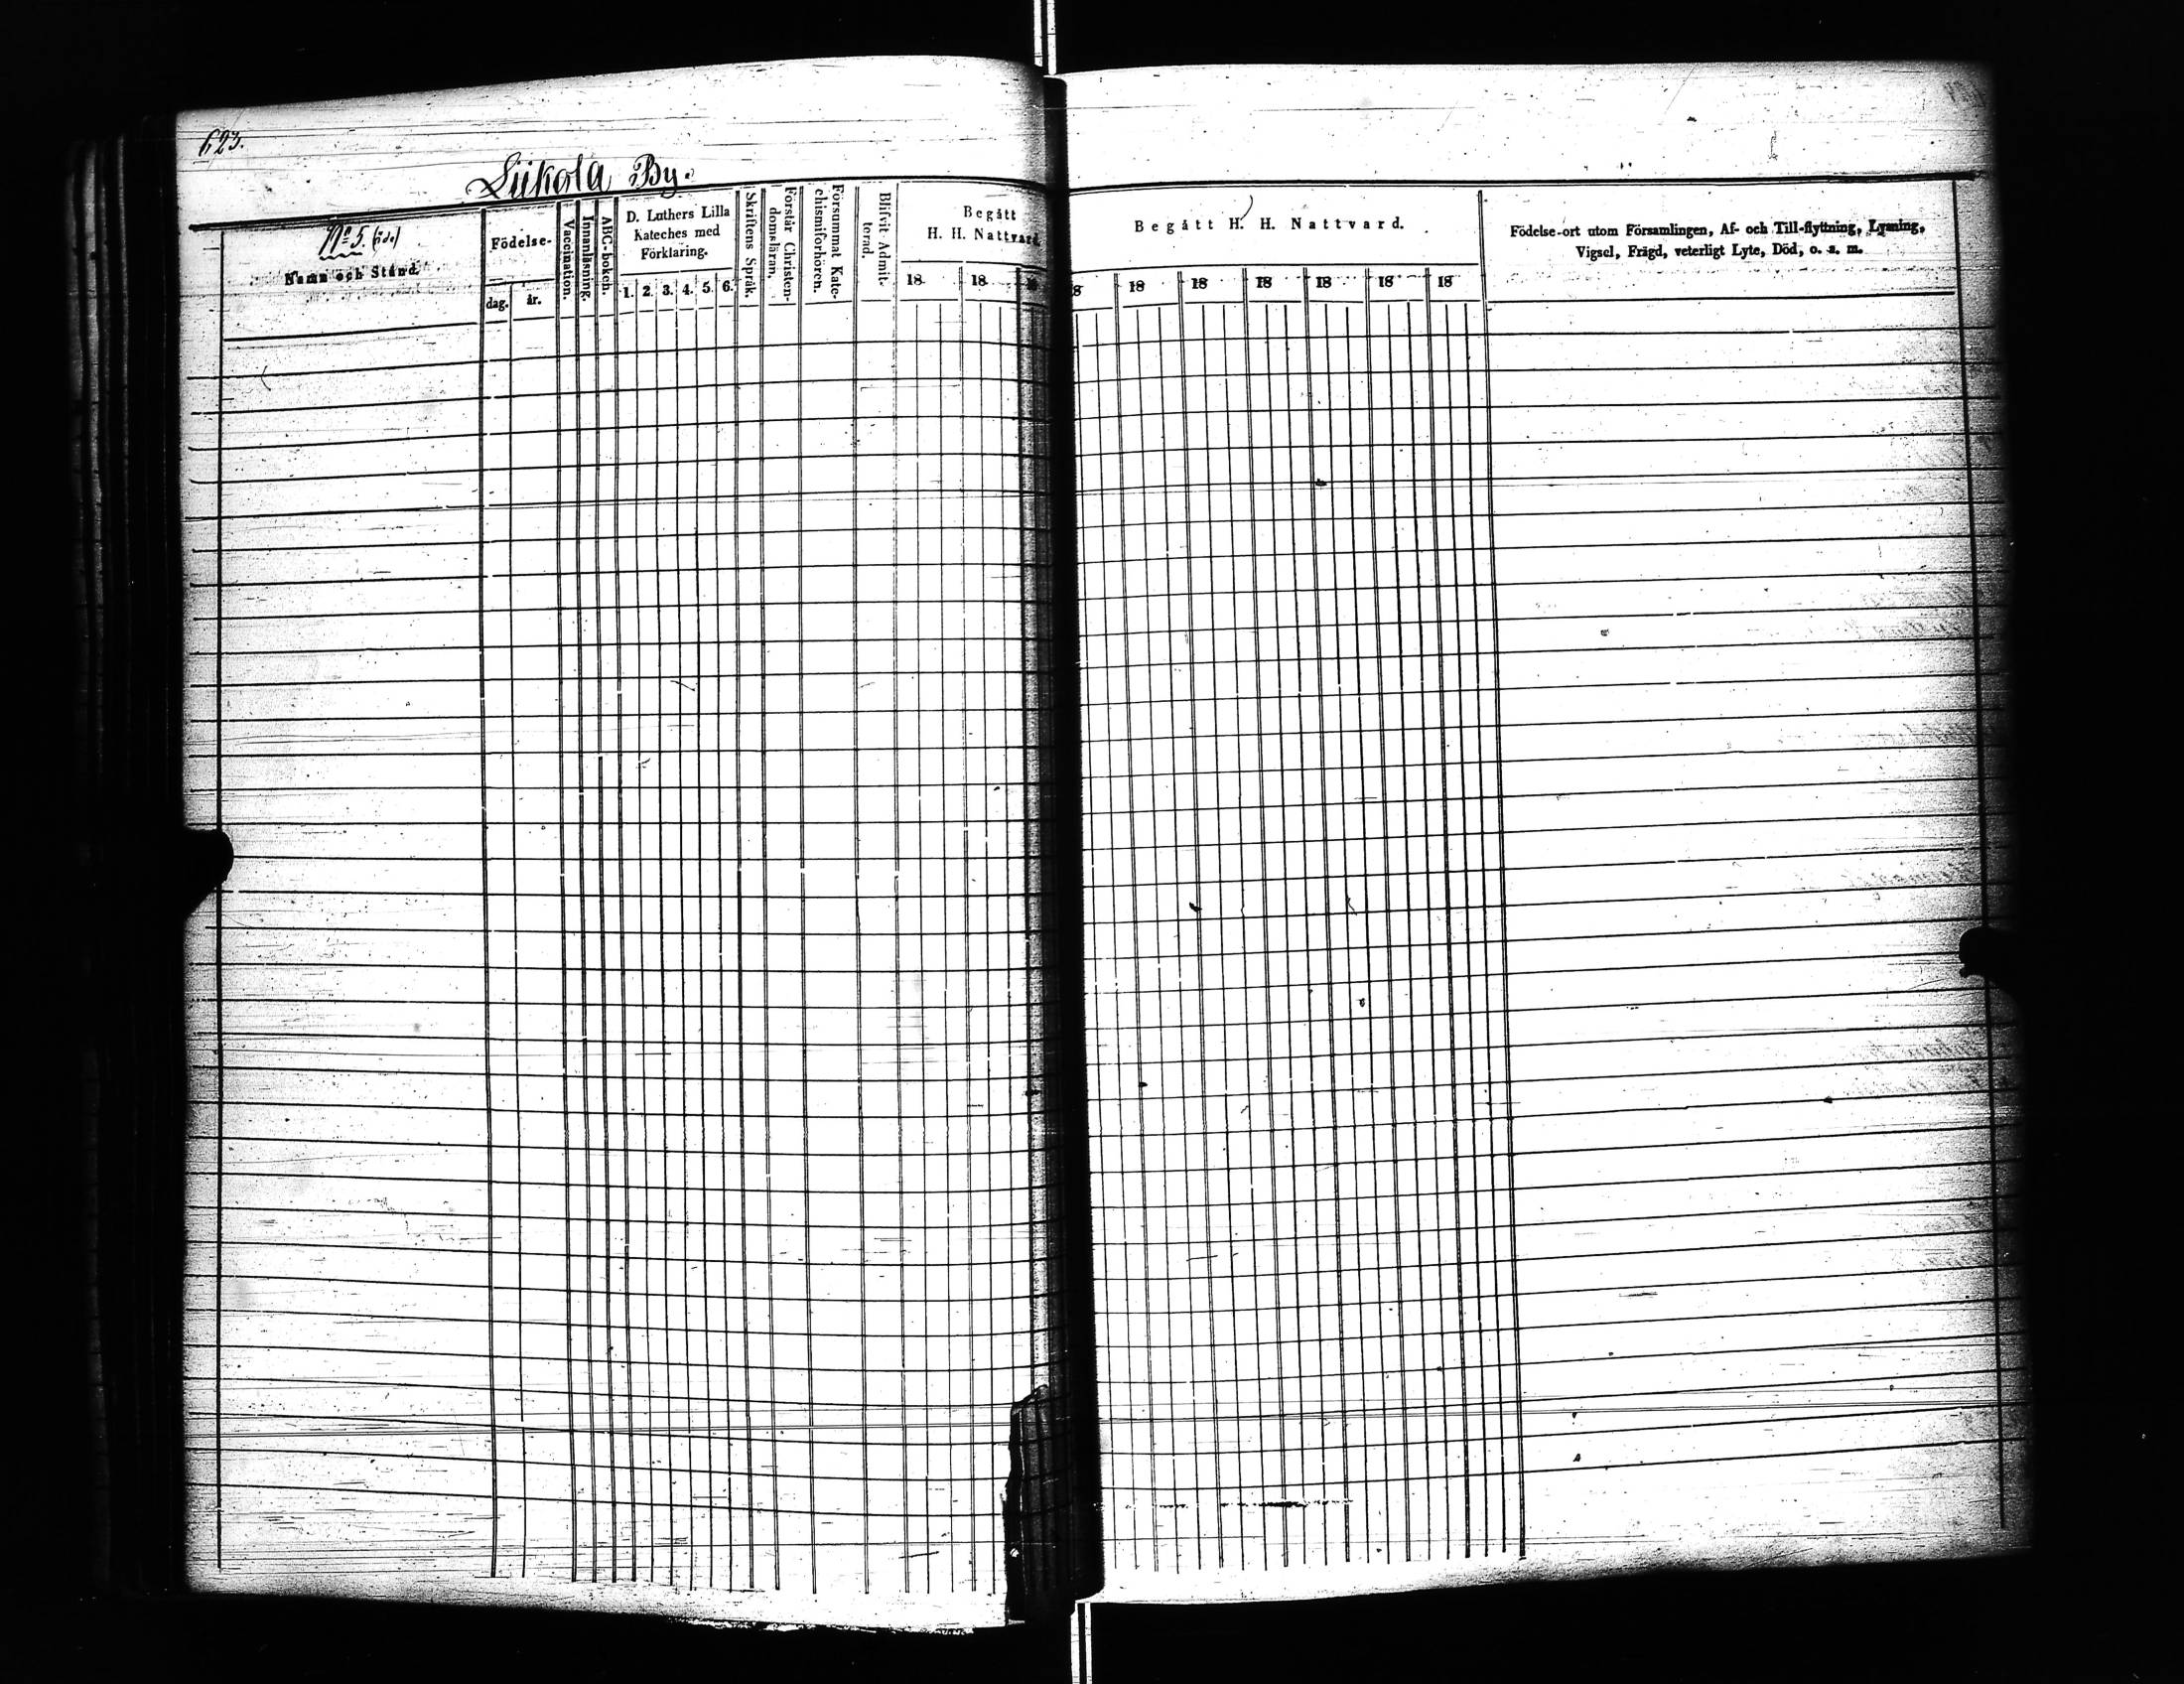 623.
Liikola By.
No 5. (öde)
Namn och Stånd.
Födelse-
dag.
år.
Vaccination.
Innanläsning.
ABC-boken.
D. Luthers Lilla
Kateches med
Förklaring.
1. 2. 3. 4. 5. 6.
Skriftens Språk.
Förstår Christen-
domsläran.
Försummat Kate-
chismiförhören.
Blifvit Admit-
terad.
Begått
H. H. Nattvard
18 18
Begått H. H. Nattvard.
8 18 18 18 18 18 18
Födelse-ort utom Församlingen, Af- och Till-flyttning, Lysning,
Vigsel, Frägd, veterligt Lyte, Död, o. s. m.